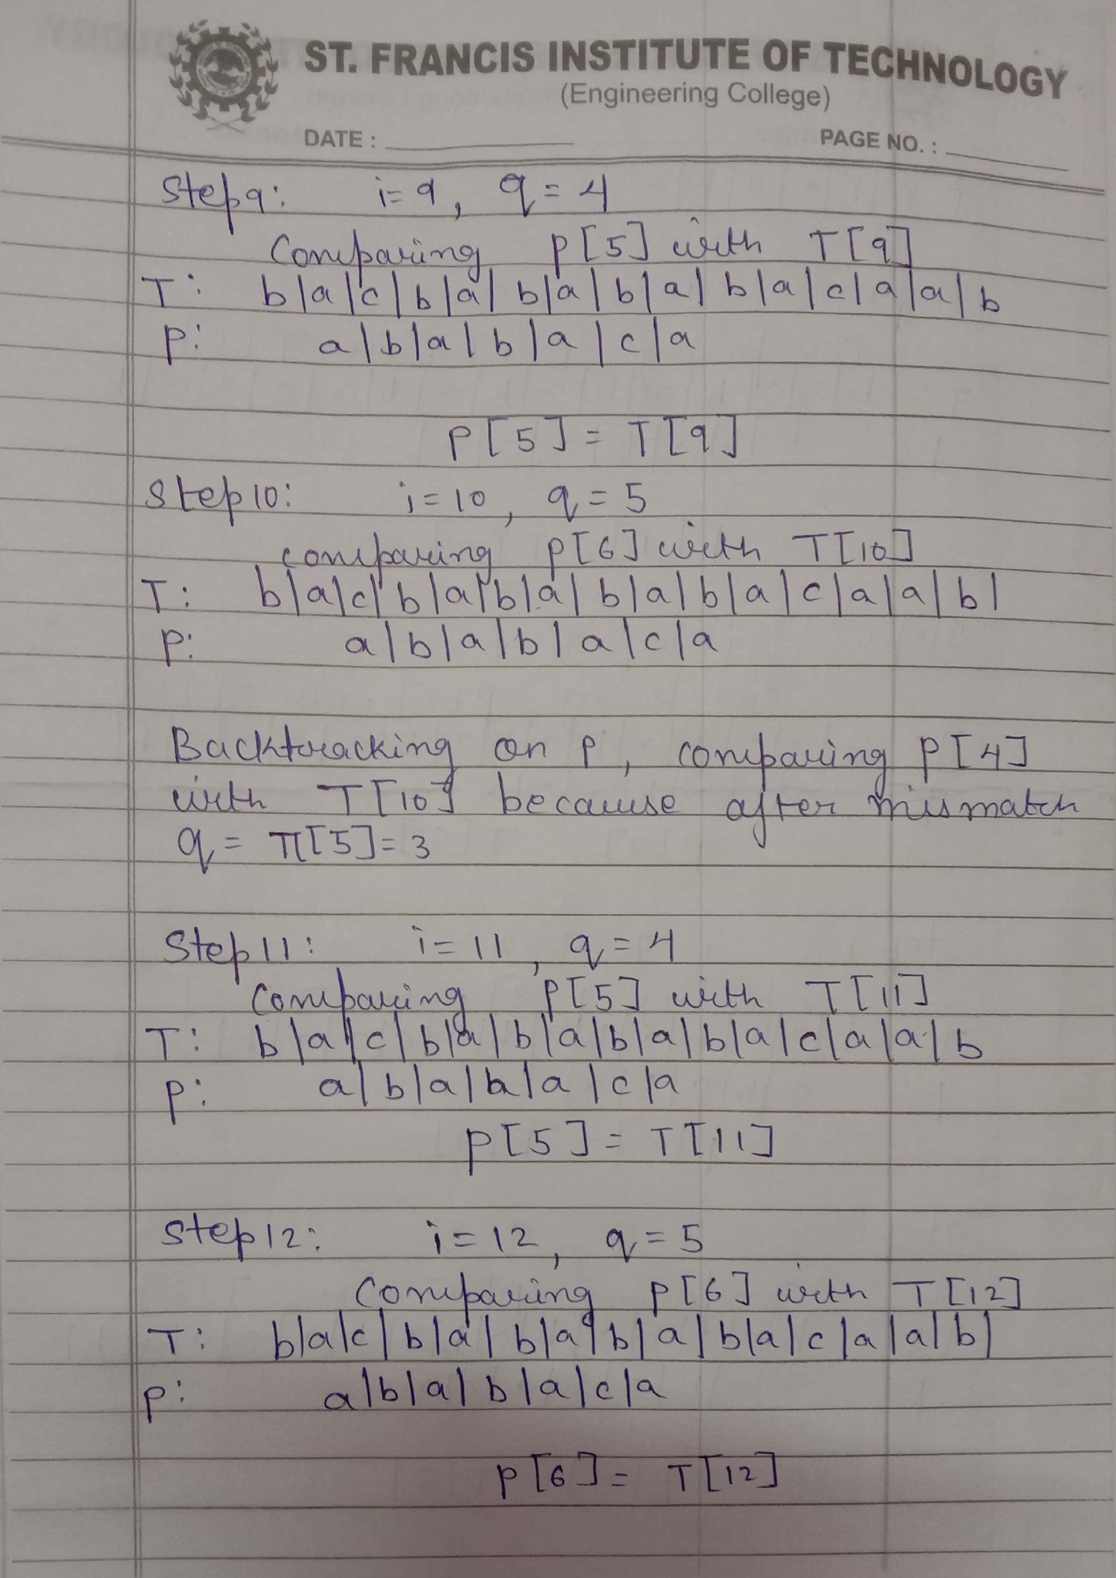 ST. FRANCIS INSTITUTE OF TECHNOLOGY
(Engineering College)
DATE : PAGE NO. :
Step 9: i=9, q=4
Comparing P[5] with T[9]
T: b|a|c|b|a|b|a|b|a|b|a|c|a|a|b
P: a|b|a|b|a|c|a
P[5] = T[9]
Step 10: i=10, q=5
comparing P[6] with T[10]
T: b|a|c|b|a|b|a|b|a|b|a|c|a|a|b|
P: a|b|a|b|a|c|a
Backtracking on P, comparing P[4]
with T[10] because after mismatch
q = π[5]=3
Step 11: i=11, q=4
Comparing P[5] with T[11]
T: b|a|c|b|a|b|a|b|a|b|a|c|a|a|b
P: a|b|a|b|a|c|a
P[5] = T[11]
Step 12: i=12, q=5
Comparing P[6] with T[12]
T: b|a|c|b|a|b|a|b|a|b|a|c|a|a|b|
P: a|b|a|b|a|c|a
P[6] = T[12]